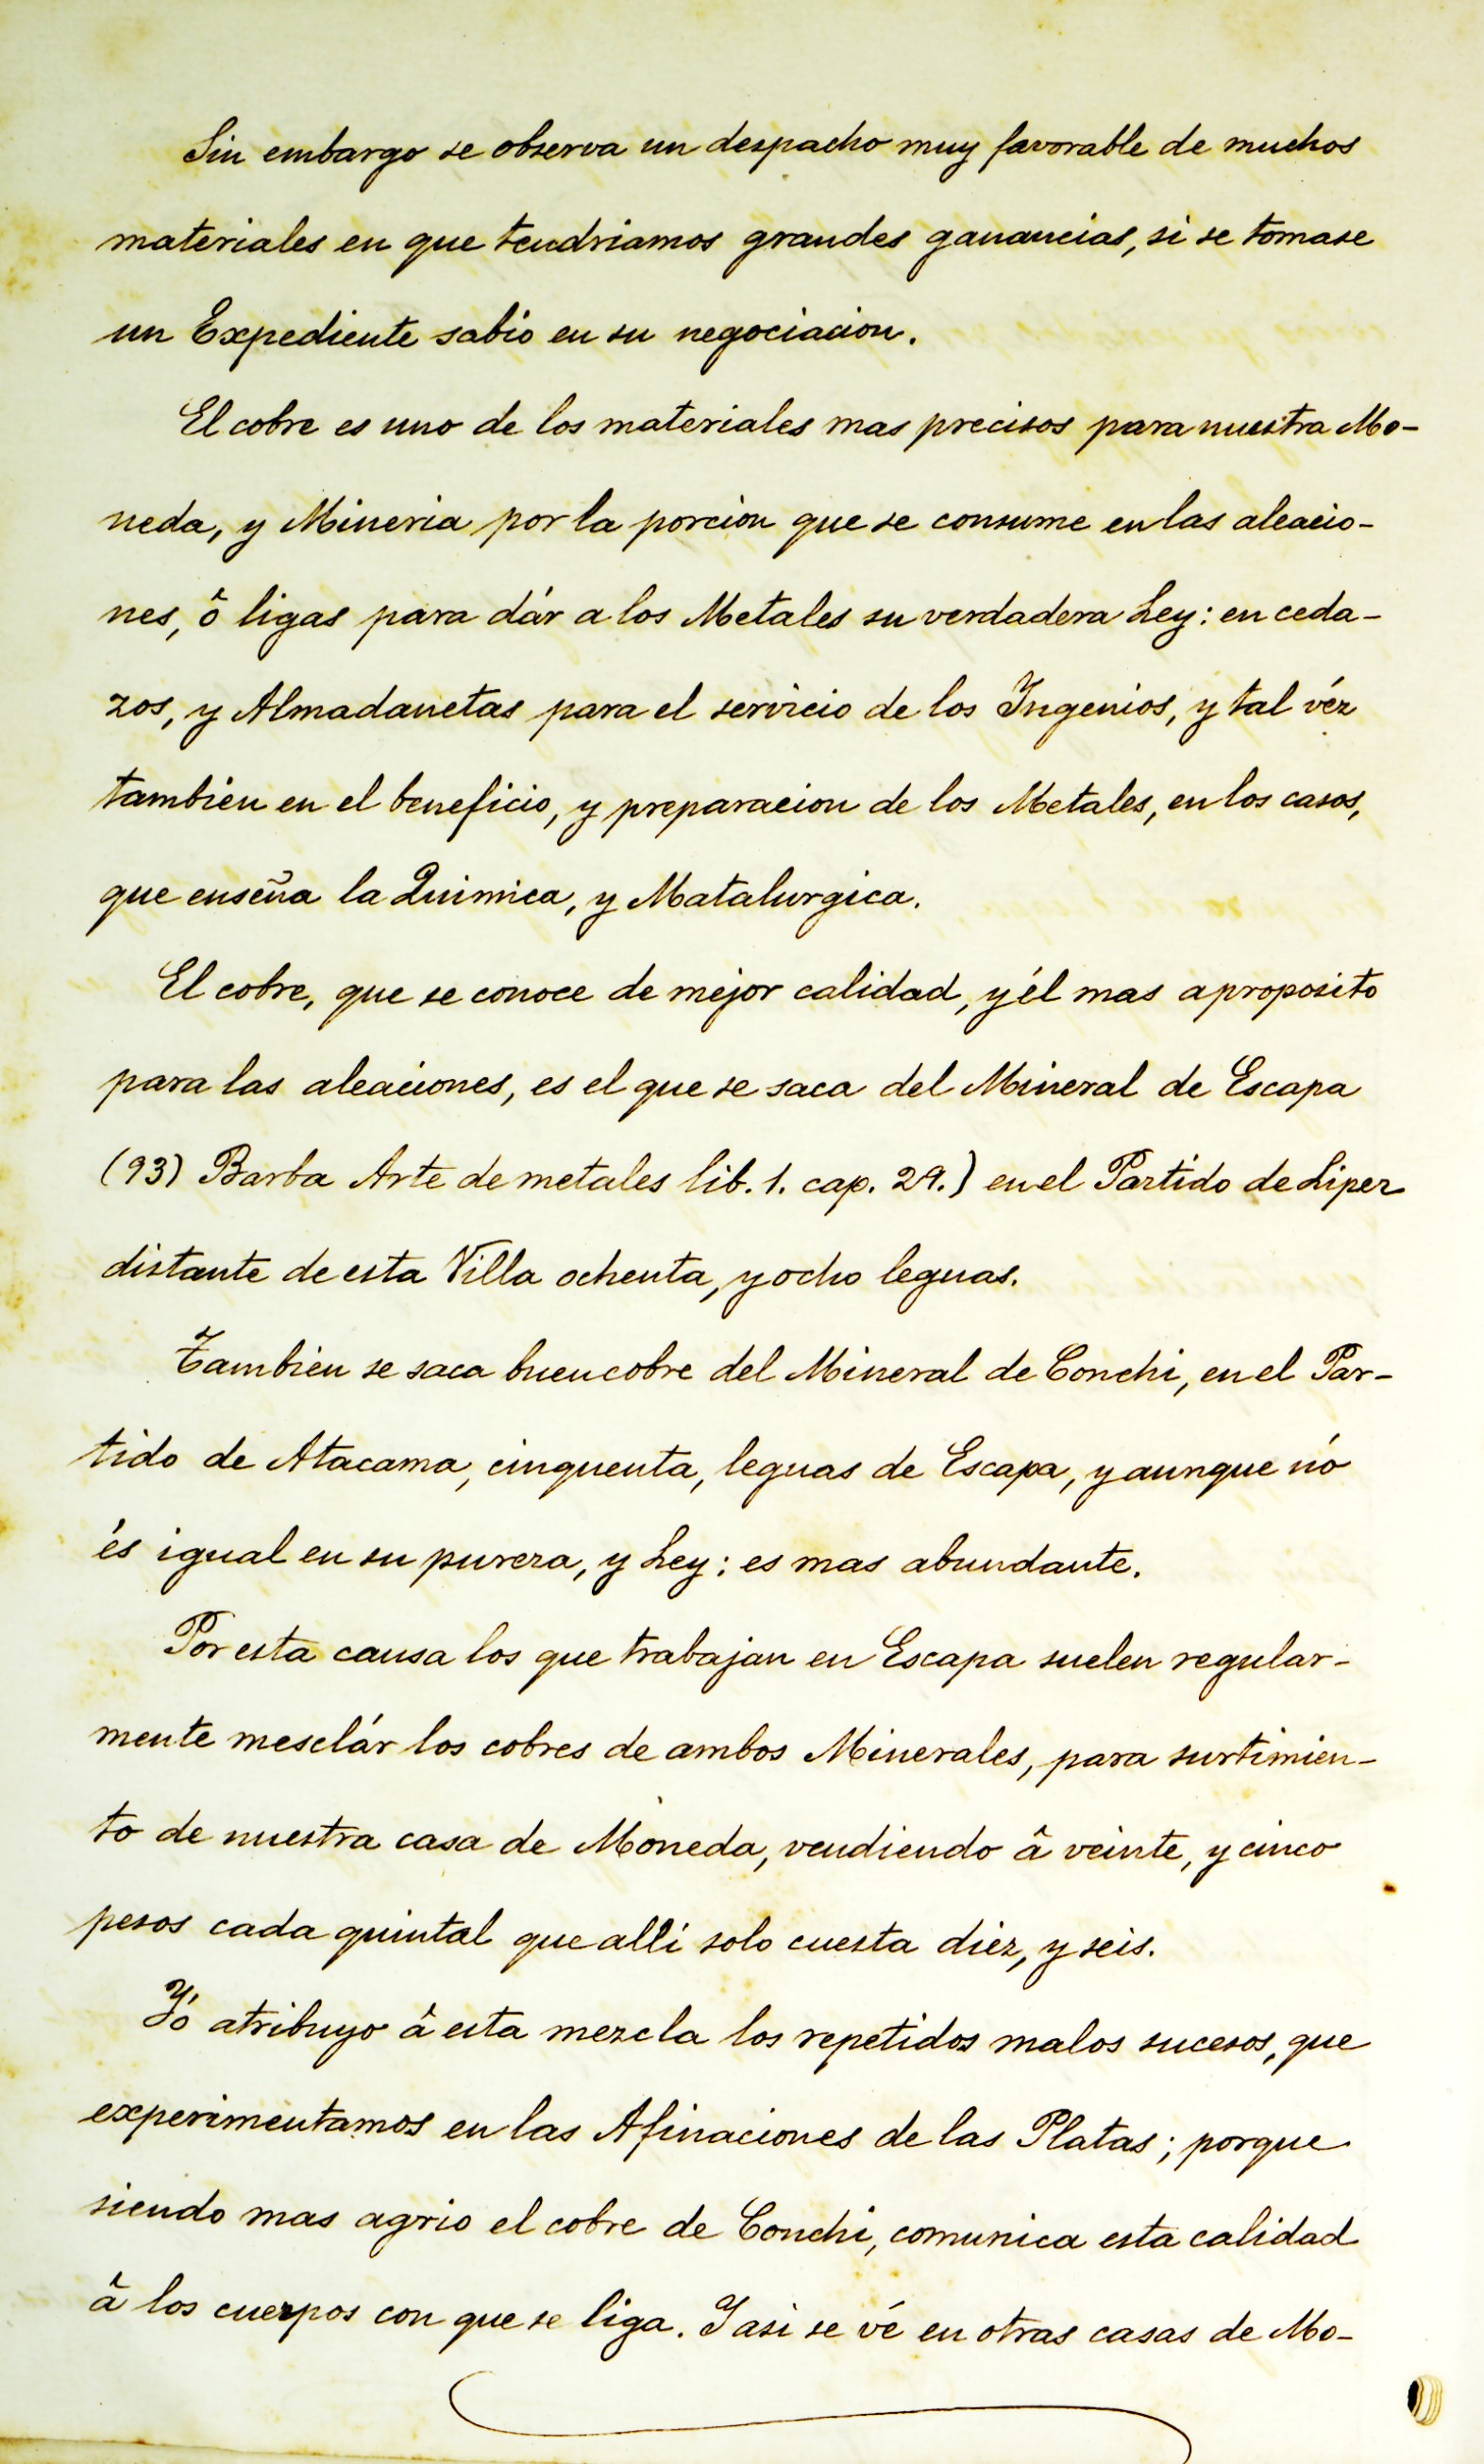 Sin embargo se observa un despacho muy favorable de muchos
materiales en que tendriamos grandes ganancias, si se tomase
un Expediente sabio en su negociacion.
El cobre es uno de los materiales mas precisos para nuestra Mo-
neda, y Mineria por la porcion que se consume en las aleacio-
nes, ô ligas para dár a los Metales su verdadera Ley: en ceda-
zos, y Almadanetas para el servicio de los Ingenios, y tal véz
tambien en el beneficio, y preparacion de los Metales, en los casos,
que enseña la Quimica, y Matalurgica.
El cobre, que se conoce de mejor calidad, y él mas aproposito
para las aleaciones, es el que se saca del Mineral de Escapa
(93) Barba Arte de metales lib. 1. cap. 29.) en el Partido de Lipez
distante de esta Villa ochenta, y ocho leguas.
Tambien se saca buen cobre del Mineral de Conchi, en el Par-
tido de Atacama, cinquenta, leguas de Escapa, y aunque nó
és igual en su pureza, y Ley: es mas abundante.
Por esta causa los que trabajan en Escapa suelen regular-
mente mesclár los cobres de ambos Minerales, para surtimien-
to de nuestra casa de Moneda, vendiendo â veinte, y cinco
pesos cada quintal que alli solo cuesta diez, y seis.
Yó atribuyo â esta mezcla los repetidos malos sucesos, que
experimentamos en las Afinaciones de las Platas; porque
siendo mas agrio el cobre de Conchi, comunica esta calidad
â los cuerpos con que se liga. Y asi se vé en otras casas de Mo-